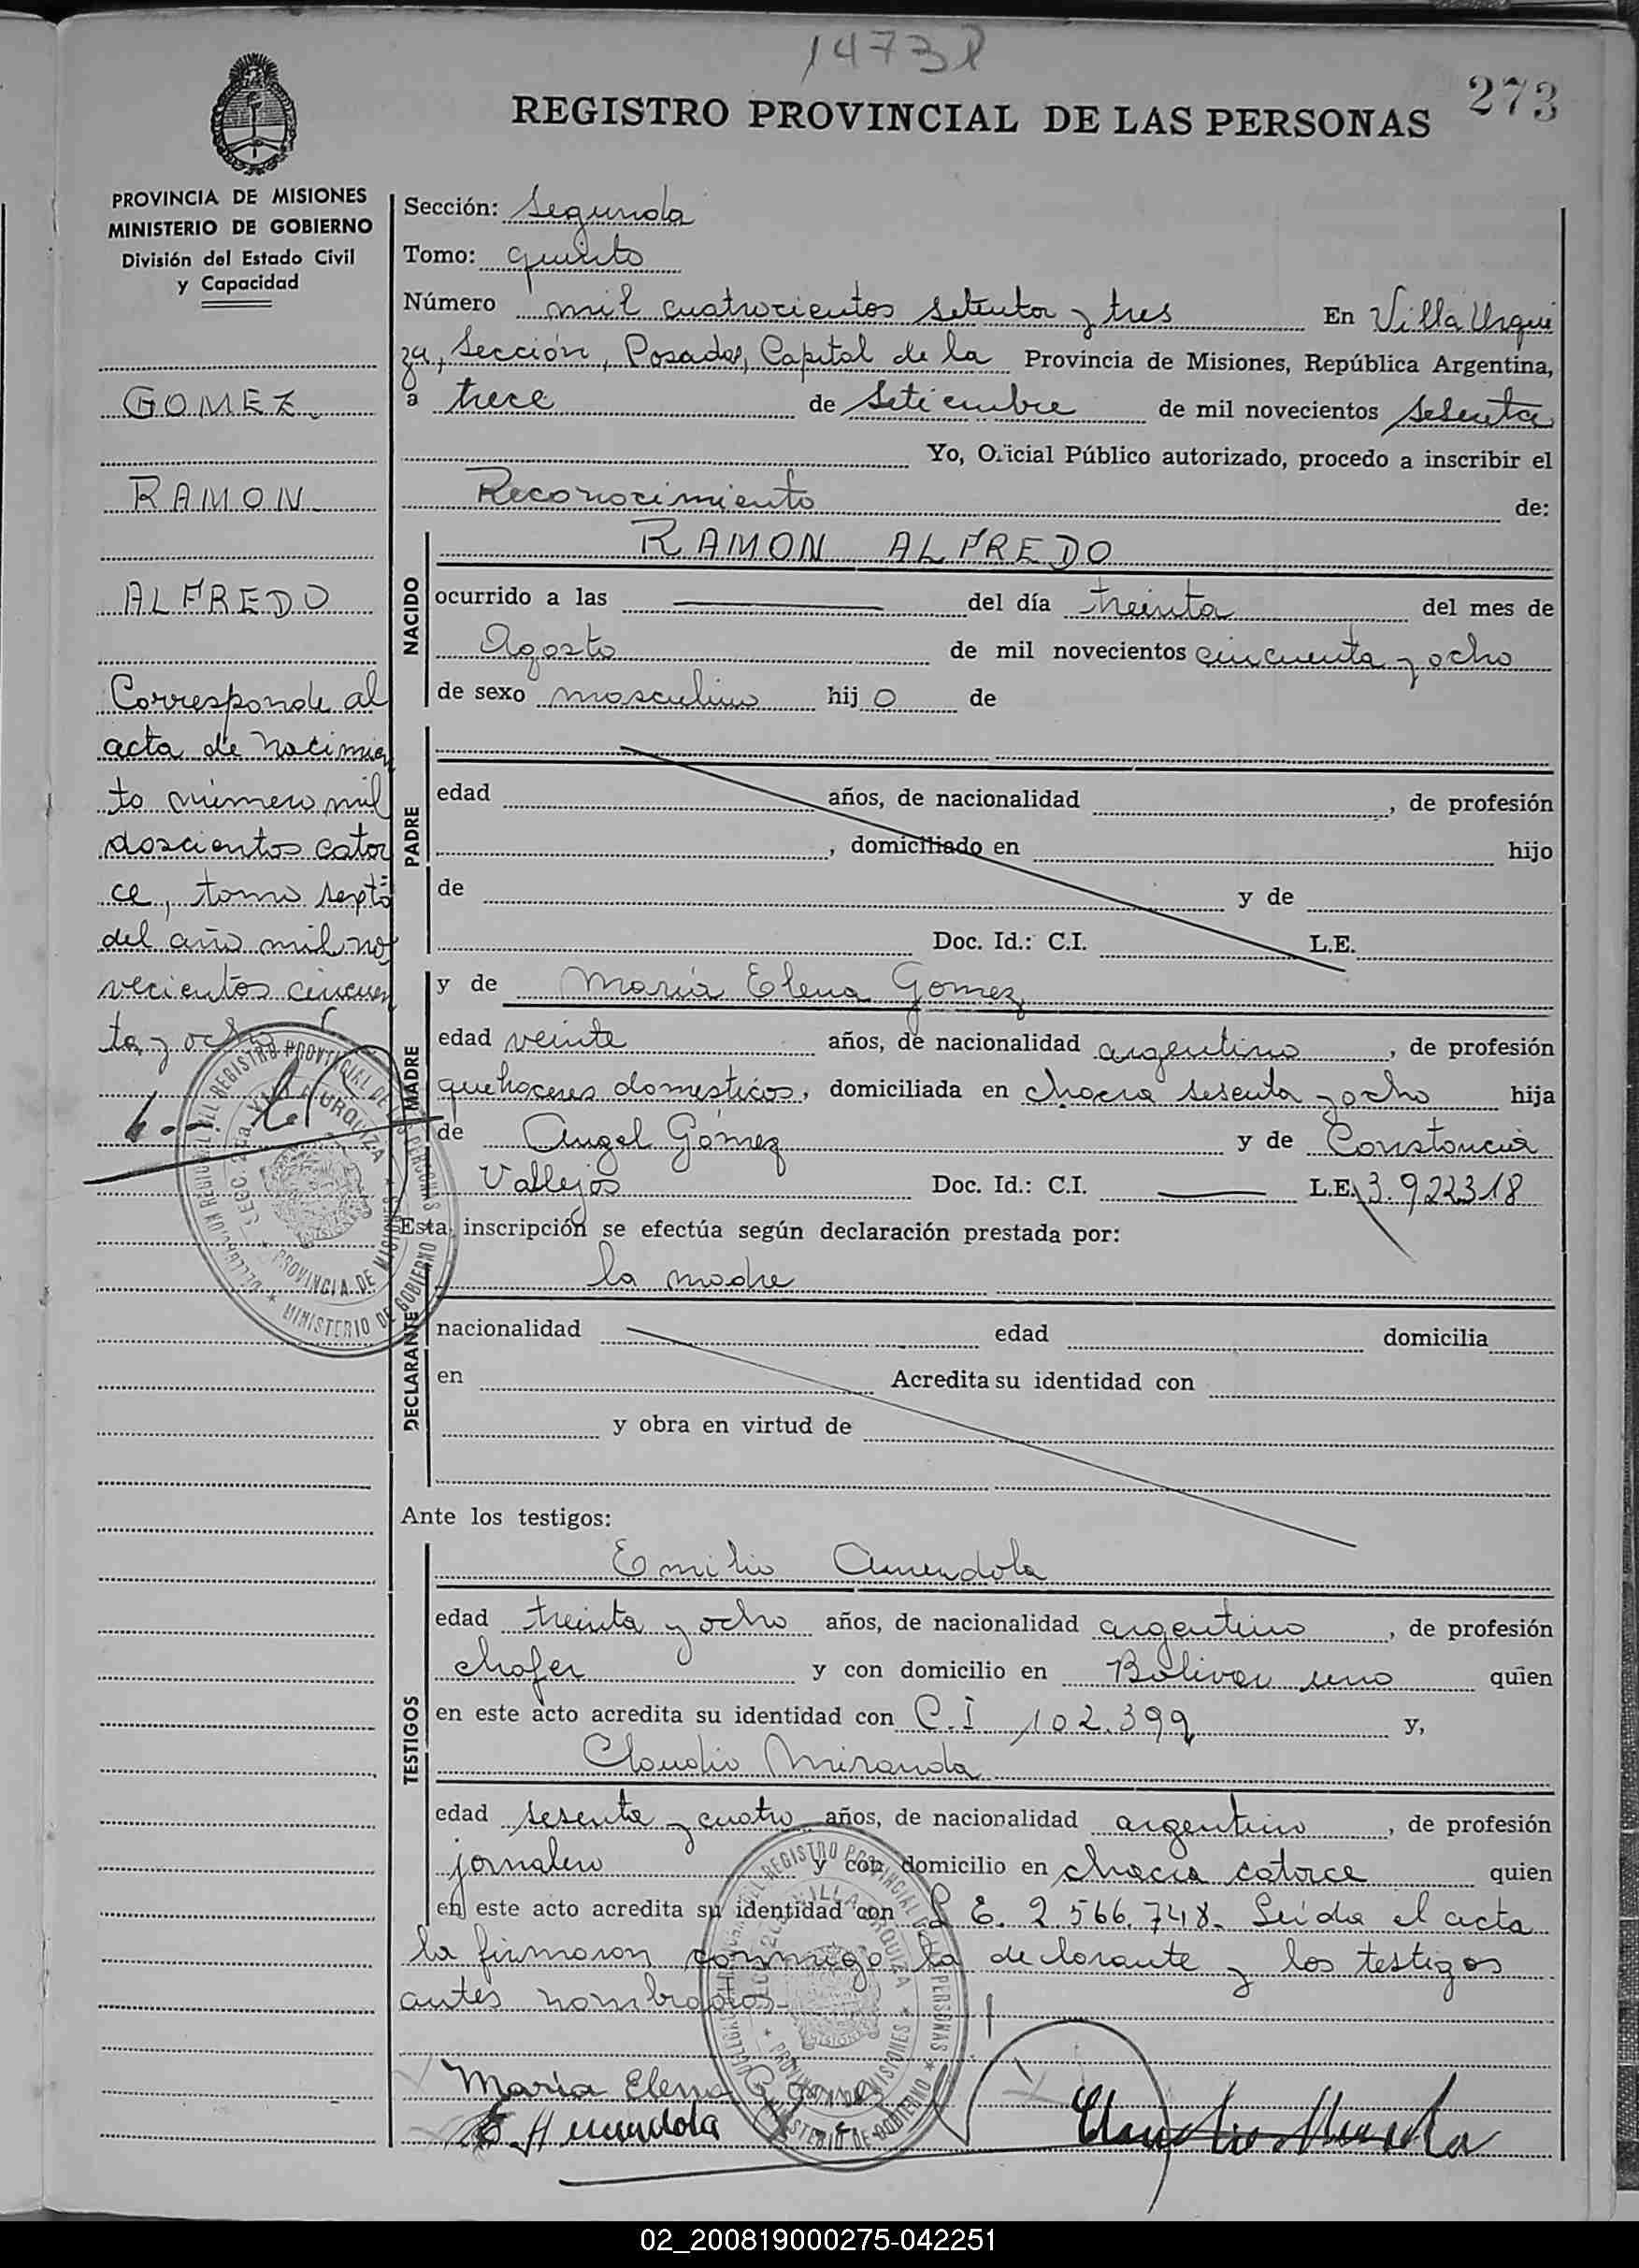 1473
273
REGISTRO PROVINCIAL DE LAS PERSONAS
PROVINCIA DE MISIONES
MINISTERIO DE GOBIERNO
División del Estado Civil
y Capacidad
GOMEZ
RAMON
ALFREDO
Corresponde al
acta de nacimien
to número mil
doscientos cator
ce, tomo septo
del año mil no
vecientos cincuen
ta y ocho
Sección: Segunda
Tomo: quinto
Número mil cuatrocientos setenta y tres En Villa Urqui
za, Sección, Posadas, Capital de la Provincia de Misiones, República Argentina,
a trece de Setiembre de mil novecientos sesenta
Yo, Oficial Público autorizado, procedo a inscribir el
Reconocimiento de:
NACIDO
RAMON ALFREDO
ocurrido a las del día treinta del mes de
Agosto de mil novecientos cincuenta y ocho
de sexo masculino hijo de
PADRE
edad años, de nacionalidad , de profesión
, domiciliado en hijo
de y de
Doc. Id.: C.I. L.E.
MADRE
y de María Elena Gomez
edad veinte años, de nacionalidad argentina, de profesión
quehaceres domesticos, domiciliada en chacra sesenta y ocho hija
de Angel Gómez y de Constancia
Vallejos Doc. Id.: C.I. L.E. 3.922318
Esta inscripción se efectúa según declaración prestada por:
DECLARANTE
la madre
nacionalidad edad domicilia
en Acredita su identidad con
y obra en virtud de
Ante los testigos:
TESTIGOS
Emilio Amendola
edad treinta y ocho años, de nacionalidad argentino, de profesión
chofer y con domicilio en Bolivar uno quien
en este acto acredita su identidad con C.I 102.399 y,
Claudio Miranda
edad sesenta y cuatro años, de nacionalidad argentino, de profesión
jornalero y con domicilio en chacra catorce quien
en este acto acredita su identidad con L E. 2.566.748. Leida el acta
la firmaron conmigo la declarante y los testigos
antes nombrados.
María Elena Gomez
E. Amendola
Claudio Miranda
REGISTRO PROVINCIAL DE LAS PERSONAS
VILLA URQUIZA
PROVINCIA DE MISIONES
MINISTERIO DE GOBIERNO
02_200819000275-042251